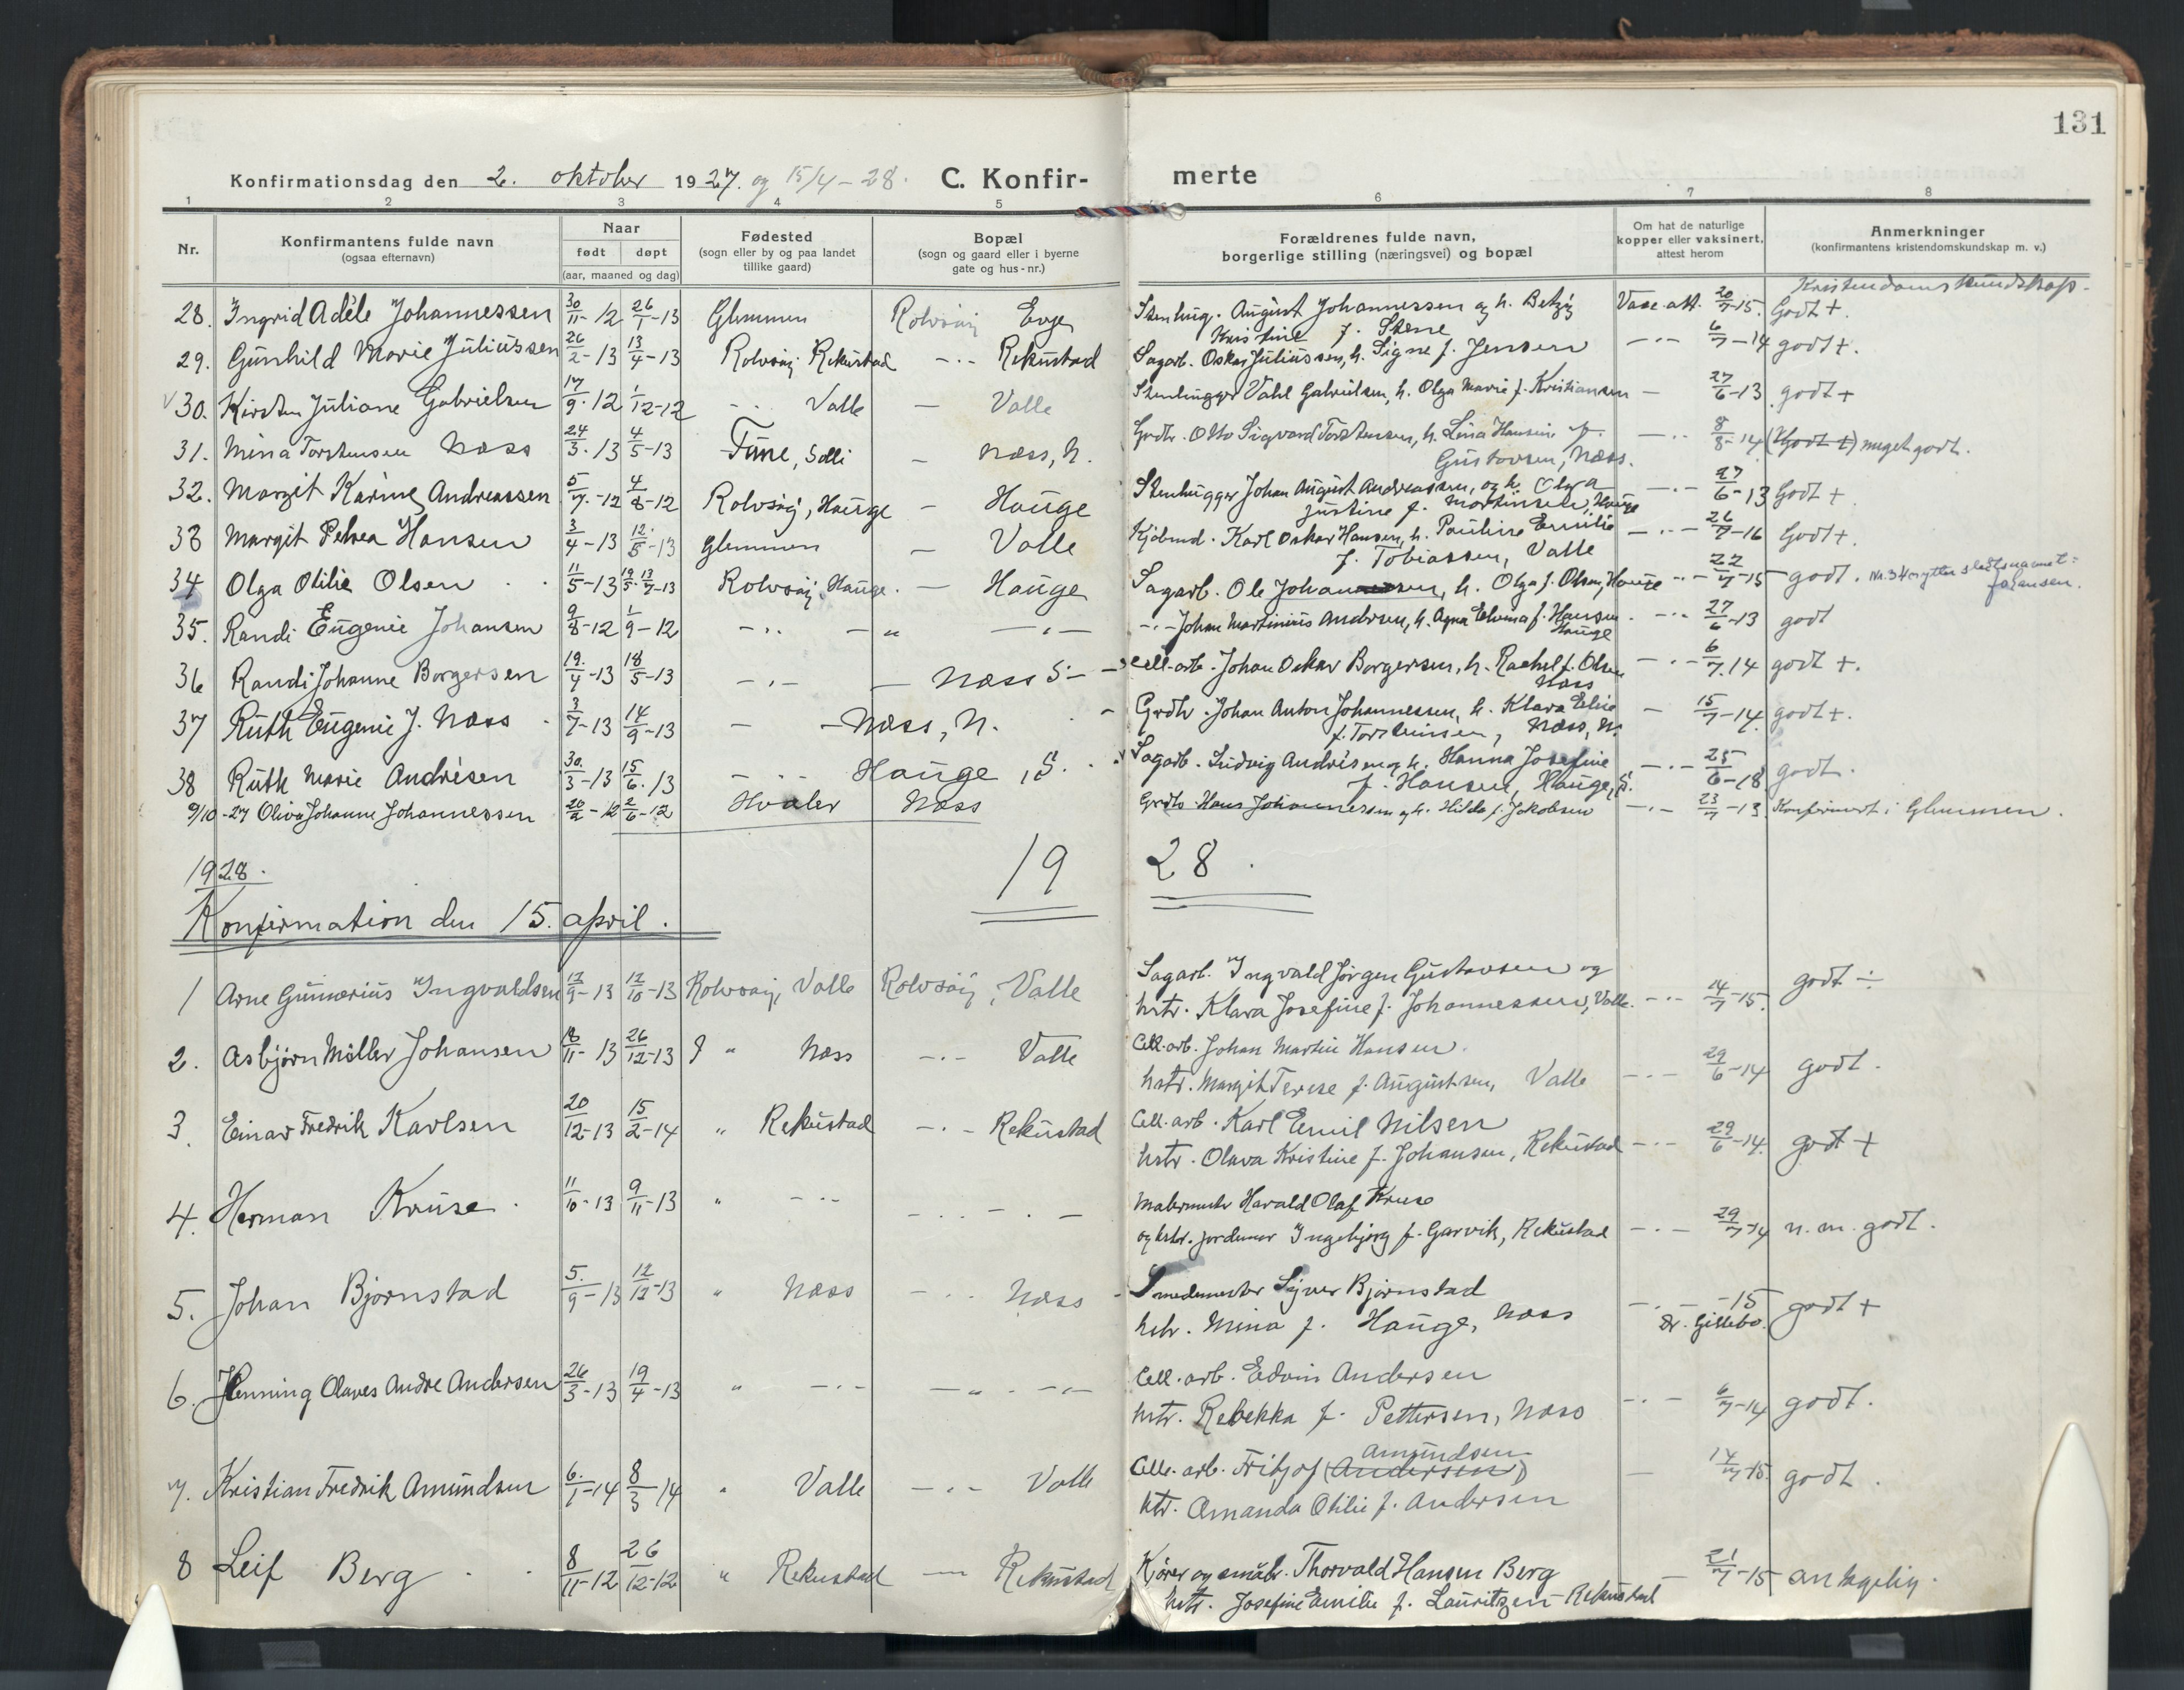 131
Konfirmationsdag den 2. oktober 1927. og 15/4-28. C. Konfir- merte
1 2 3 4 5 6 7 8
Nr. Konfirmantens fulde navn (ogsaa efternavn) Naar født døpt (aar, maaned og dag) Fødested (sogn eller by og paa landet tillike gaard) Bopæl (sogn og gaard eller i byerne gate og hus-nr.) Forældrenes fulde navn, borgerlige stilling (næringsvei) og bopæl Om hat de naturlige kopper eller vaksinert, attest herom Anmerkninger (konfirmantens kristendomskundskap m. v.)
Kristendomskundskap.
28. Ingrid Adéle Johannessen 30/11-12 26/1-13 Glemmen Rolvsøy Evje Stenhug. August Johannessen og h. Betzy Vacc. att. 20/7-15. Godt +.
Kristine f. Skene
29. Gunhild Marie Juliussen 26/2-13 13/4-13 Rolvsøy Rekustad -..- Rekustad Sagarb. Oskar Juliussen, h. Signe f. Jensen -..- 6/7-14 godt +.
30. Kirsten Juliane Gabrielsen 17/9-12 1/12-12 -..- Valle — Valle Stenhugger Vahl Gabrielsen, h. Olga Marie f. Kristiansen — 27/6-13 godt +
31. Mina Torstensen Næss 24/3-13 4/5-13 Tune, Solli — Næss, N. Grdbr. Otto Sigvard Torstensen, h. Lina Hansine f. -..- 8/8-14 (Godt +) meget godt.
Gustavsen, Næss.
32. Margit Karine Andreassen 5/7-12 4/8-12 Rolvsøy, Hauge — Hauge Stenhugger Johan August Andreassen, og h. Olga -..- 27/6-13 Godt +
Justine f. Mortinsen, Hauge
33 Margit Petrea Hansen 3/4-13 12/5-13 Glemmen — Valle Kjøbmd. Karl Oskar Hansen, h. Pauline Emilie -..- 26/7-16 Godt +.
f. Tobiassen, Valle
34 Olga Otilie Olsen 11/5-13 13/7-13 Rolvsøy, Hauge. — Hauge Sagarb. Ole Johansen, h. Olga f. Olsen, Hauge -..- 22/7-15 godt. Nr. 34 nytter slektsnavnet: Johansen.
35. Randi Eugenie Johansen 9/8-12 1/9-12 -..- -"- -"- -..- Johan Martinius Andersen, h. Agna Elvina f. Hansen -..- 27/6-13 godt
Hauge
36 Randi Johanne Borgersen 19/4-13 18/5-13 -..- — Næss S. Cell-arb. Johan Oskar Borgersen, h. Rachel f. Olsen -..- 6/7-14 godt +.
Næss
37 Ruth Eugenie J. Næss 3/7-13 14/9-13 — — Næss, N. Grdbr. Johan Anton Johannessen, h. Klara Elise — 15/7-14. godt +.
f. Torsteinsen, Næss, N.
38 Ruth Marie Andrésen 30/3-13 15/6-13 -..- Hauge, S. Sagarb. Ludvig Andrésen og h. Hanna Josefine -..- 25/6-18 godt.
f. Hansen, Hauge, S.
9/10-27 Oliva Johanne Johannessen 20/2-12 2/6-12 Hvaler Næss Grdbr. Hans Johannessen og h. Hilda f. Jakobsen -..- 23/7-13 Konfirmert i Glemmen.
1928. 19 28.
Konfirmation den 15. april.
1 Arne Gunnerius Ingvaldsen 12/9-13 12/10-13 Rolvsøy, Valle Rolvsøy, Valle Sagarb. Ingvald Jørgen Gustavsen og
hstr. Klara Josefine f. Johannessen, Valle. -..- 14/7-15. godt ÷
2. Asbjørn Møller Johansen 18/11-13 26/12-13 " Næss -..- Valle Cell.arb. Johan Martin Hansen.
hstr. Margit Terese f. Augustsen, Valle -..- 29/6-14 godt.
3. Einar Fredrik Karlsen 20/12-13 15/2-14 " Rekustad -..- Rekustad Cell.arb. Karl Emil Nilsen
hstr. Olava Kristine f. Johansen, Rekustad -..- 29/6-14. godt +
4. Herman Kruse. 11/10-13 9/11-13 " -..- -..- -..- Malermstr Harald Olaf Kruse
og hstr. jordmor Ingebjørg f. Garvik, Rekustad -..- 29/7-14 n. m. godt.
5. Johan Bjørnstad 5/9-13 12/12-13 " Næss -..- Næss Smedmester Sigver Bjørnstad
hstr. Mina f. Hauge, Næss -..- -15 Dr. Gillebo. godt +
6. Henning Olaves Andre Andersen 26/3-13 19/4-13 " -..- -"- -..- Cell.arb. Edvin Andersen
hstr. Rebekka f. Pettersen, Næss -..- 6/7-14 godt.
7. Kristian Fredrik Amundsen 6/1-14 8/3-14 " Valle -..- Valle Cell.arb. Fritjof (Andersen) Amundsen
hstr. Amanda Otilie f. Andersen — 14/7-15. godt.
8 Leif Berg 8/11-12 26/12-12 " Rekustad — Rekustad Kjører og småbr. Thorvald Hansen Berg
hstr. Josefine Emilie f. Lauritzen - Rekustad — 21/7-15 antagelig.